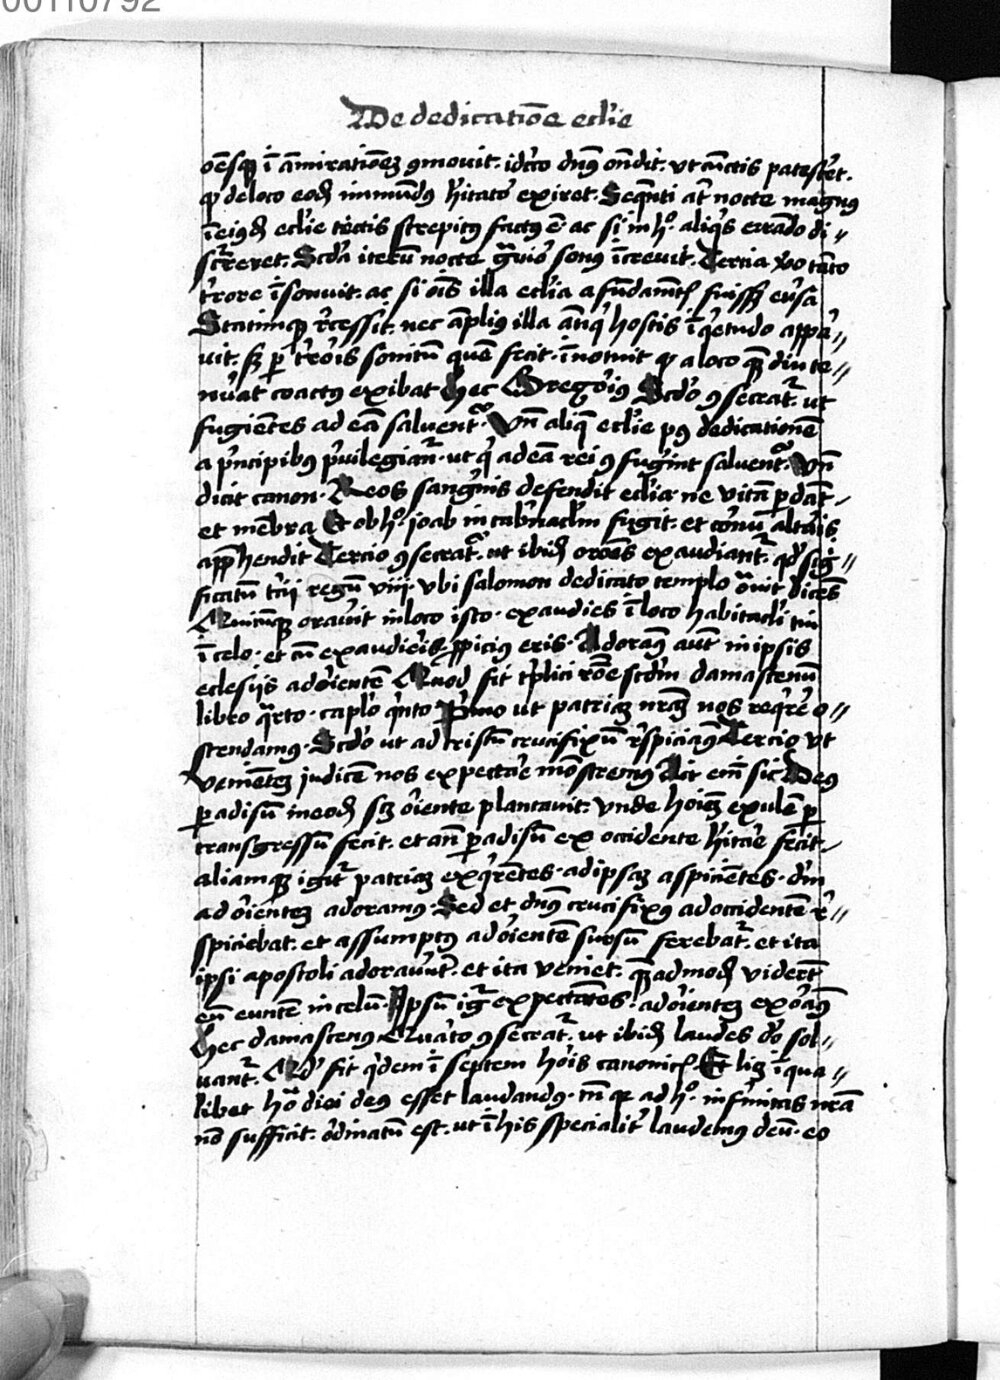 00110792
De dedicatiōe ecl'ie
oēsq̄ ī āmirationēz ꝯmouit. idcͦo dn̄s on̄dit. ut cūctis patesc̄et.
qͥ de loco eod̄ inmūdꝰ hītatoͬ exiret. Seqn̄ti aūt nocte magnꝰ
ī eiusd̄ ecl'ie tectis strepitꝰ factꝰ ē ac si in hͦ aliqͥs errādo di⸗
scͬreret. Scd̓a iterū nocte gͣuioͬ sonꝰ īcreuit. Tercia ūo tāto
tͬrore īsonuit. ac si oīs illa ecl'ia a fūdamētꝭ fuiss̄ eūsa
Statimqꝫ rͤcessit. nec āplius illa ātiqͥ hostis īqͥetudo appa⸗
uit. sꝫ ꝑ tͬroris sonitū quē fecit. īnotuit qꝫ a loco quē diu te⸗
nuͤat coactꝰ exibat Hec Gregoriꝰ Scd̓o ꝯsecratͬ. ut
fugiētes ad eā saluentͬ. Vn̄ aliq̄ ecl'ie pꝰ dedicationē
a pͥncipibꝰ pͥuilegiātͬ. ut qͥ ad eā rei ꝯfugiūt saluentͬ. Vn̄
dicit canon. Reos sangͥnis defendit ecl'ia ne vitā ꝑdāt
et mēbra Et ob hͦ ioab in tabͬnacl'm fugit. et cornu altaris
app̄hendit Tercio ꝯsecratͬ. ut ibid̄ oroēs exaudiantͬ. qd̓ sig⸗
ficatū tͬcij regū viij. vbi salomon dedicato templo oͣuit dicēs
Quicūqꝫ orauit in loco isto. exaudies ī loco habitacl'i tui
ī celo. et cū exaudieris ꝓpiciꝰ eris. Adoramꝰ aūt in ipsis
eclesijs ad oͬientē Quod fit tͥplici rōe scd̓m damascenū
libro qͣrto. capl'o qͥnto Pͥmo ut patriaꝫ nrāꝫ nos reqͥrͤe o⸗
stendamꝰ. Scd̓o ut ad cristū crucifixū rͤspiciamꝰ Tercio ut
venientēꝫ judicē nos expectare mōstremꝰ Ait em̄ sic Deꝰ
ꝑadisū in eod̄ sꝫ oͬiente plantauit. vnde hoīeꝫ exulē ꝑ
transgressū fecit. et an̄ ꝑadisū ex occidente hītare fecit.
aliamqꝫ igitͬ patriaꝫ exqͥrētes. ad ipsaꝫ aspiciētes. dn̄m
ad oͬientēꝫ adoramꝰ. Sed et dn̄s crucifixꝰ ad occidentē rͤ⸗
spiciebat. et assumptꝰ ad oͬientē sursū ferebatͬ. et ita
ipsi apostoli adorauͬūt. et ita veniet. quēadmod̄ viderūt
eū euntē in celū. Ipsū igͬ expectātes. ad oͬientēꝫ exoͣmꝰ
Hec damascenꝰ Quarto ꝯsecratͬ. ut ibid̄ laudes dō sol⸗
uantͬ. Qd̓ fit qͥdem ī septem hoͬis canonicꝭ. Et licꝫ ī qua⸗
libet hoͣ diei deꝰ esset laudandꝰ. tn̄ qꝫ ad hͦ infͥmitas nrā
nō sufficit. oͬdinatū est. ut ī his specialitͬ laudemꝰ deū. eo